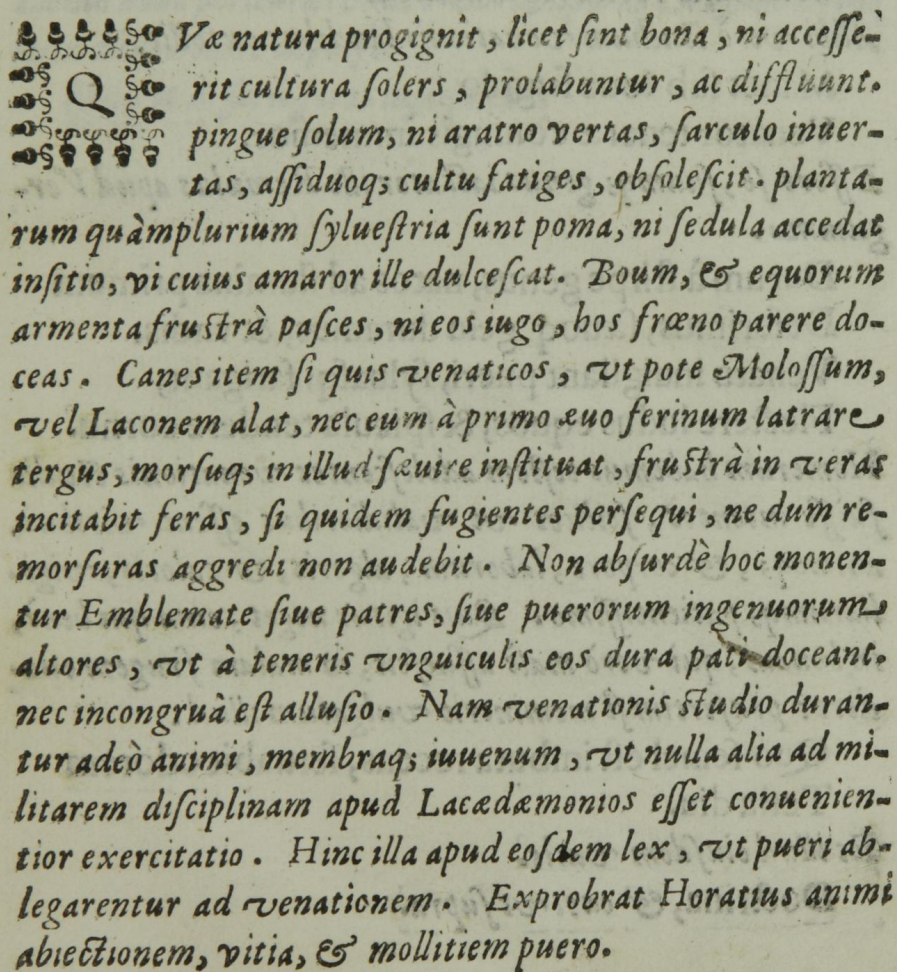 QVæ natura progignit, licet ſint bona, ni acceſſe-
rit cultura ſolers, prolabuntur, ac diffluunt.
pingue ſolum, ni aratro vertas, ſarculo inuer-
tas, aſſiduoq; cultu fatiges, obſoleſcit. planta-
rum quàmplurium ſylueſtria ſunt poma, ni ſedula accedat
inſitio, vi cuius amaror ille dulceſcat. Boum, & equorum
armenta fruſtrà paſces, ni eos iugo, hos frœno parere do-
ceas. Canes item ſi quis venaticos, vt pote Moloſſum,
vel Laconem alat, nec eum à primo æuo ferinum latrare
tergus, morſuq; in illud ſæuire inſtituat, fruſtrà in veras
incitabit feras, ſi quidem fugientes perſequi, ne dum re-
morſuras aggredi non audebit. Non abſurdè hoc monen-
tur Emblemate ſiue patres, ſiue puerorum ingenuorum
altores, vt à teneris vnguiculis eos dura pati doceant.
nec incongruà eſt alluſio. Nam venationis ſtudio duran-
tur adeò animi, membraq; iuuenum, vt nulla alia ad mi-
litarem diſciplinam apud Lacædæmonios eſſet conuenien-
tior exercitatio. Hinc illa apud eoſdem lex, vt pueri ab-
legarentur ad venationem. Exprobrat Horatius animi
abiectionem, vitia, & mollitiem puero.